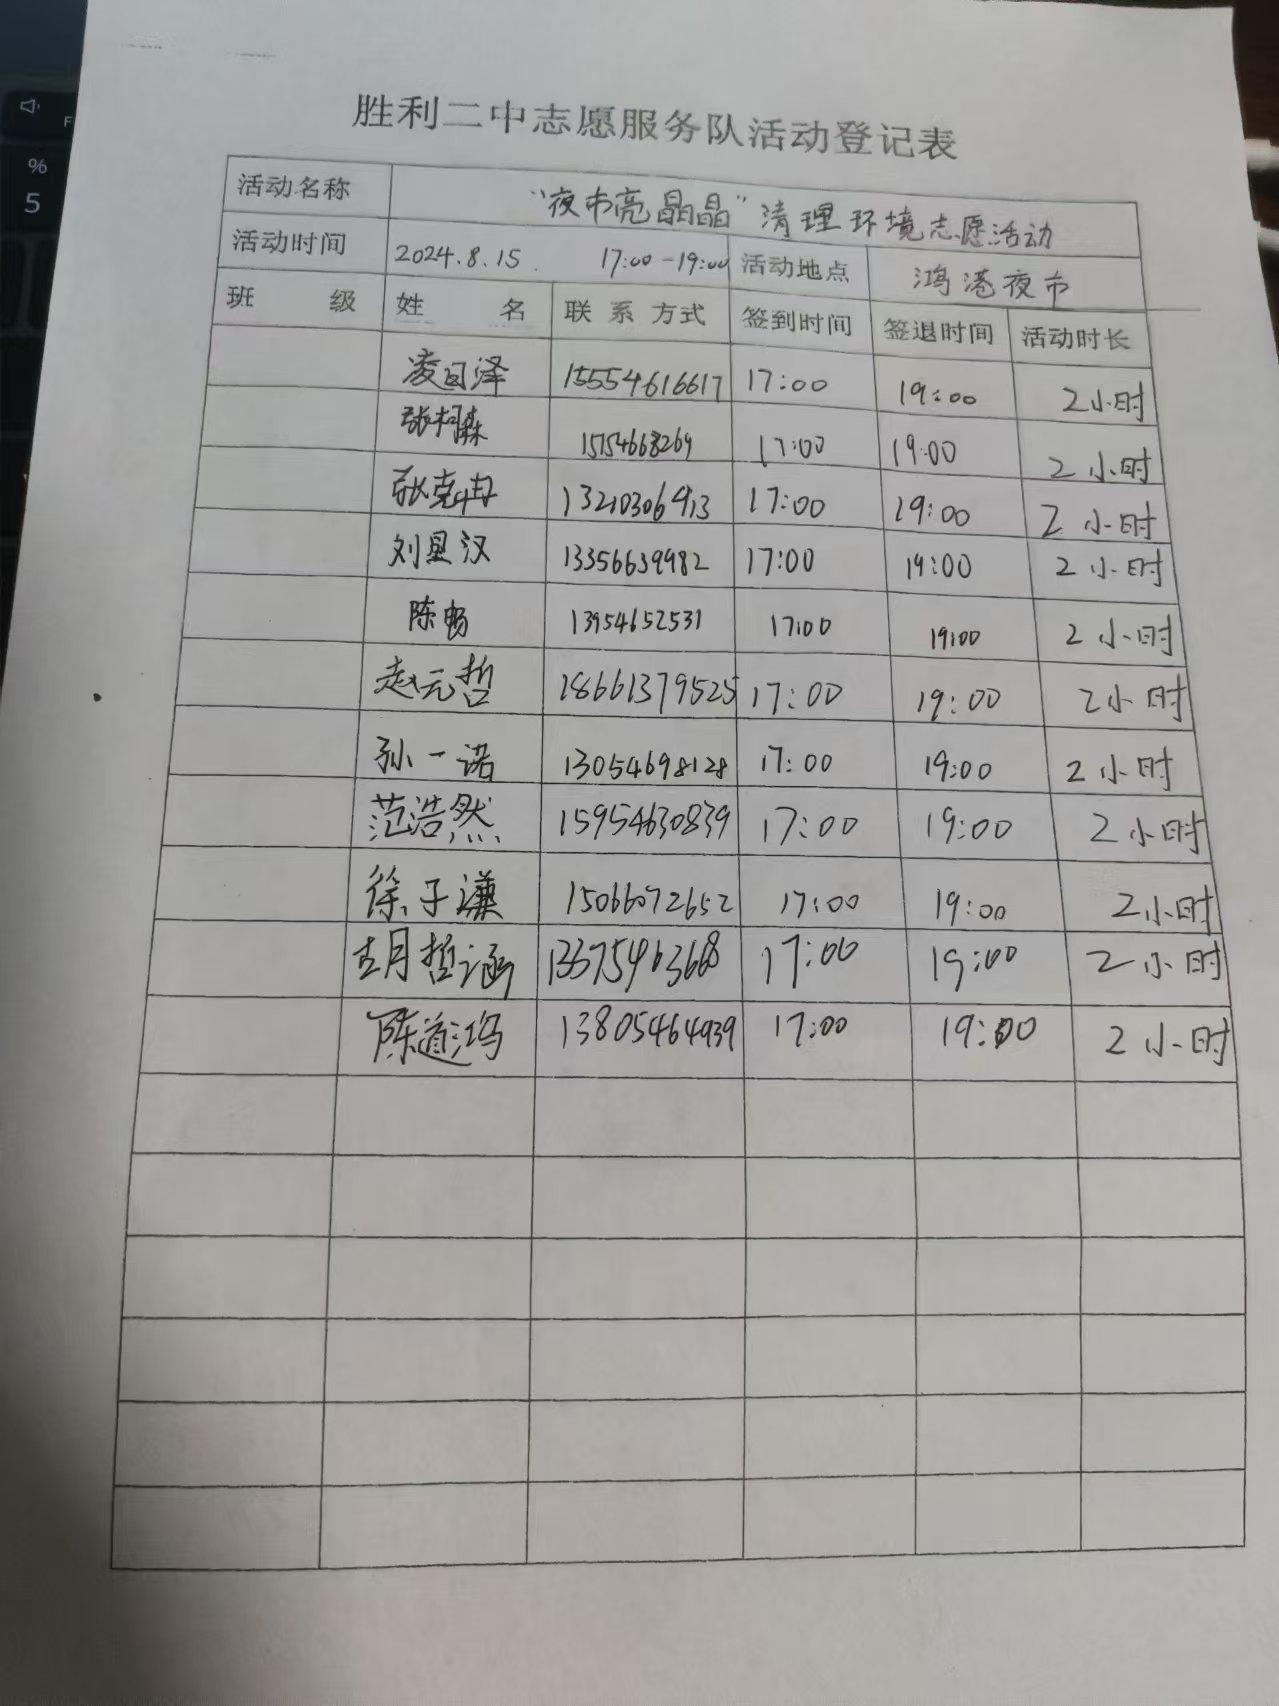 胜利二中志愿服务队活动登记表
活动名称 “夜市亮晶晶”清理环境志愿活动
活动时间 2024.8.15. 17:00-19:00 活动地点 鸿港夜市
班 级 姓 名 联系方式 签到时间 签退时间 活动时长
凌日泽 15554616617 17:00 19:00 2小时
张柯森 15154668269 17:00 19:00 2小时
张克冉 13210306913 17:00 19:00 2小时
刘显汉 13356639982 17:00 19:00 2小时
陈畅 13954652531 17:00 19:00 2小时
赵元哲 18661379525 17:00 19:00 2小时
孙一诺 13054698128 17:00 19:00 2小时
范浩然 15954630839 17:00 19:00 2小时
徐子谦 15066072652 17:00 19:00 2小时
哲涵 13375463668 17:00 19:00 2小时
陈道鸿 13805464939 17:00 19:00 2小时
%
5
F